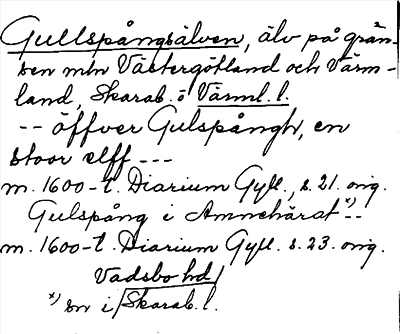 Gullspångsälven, älv på grän-
sen mln Västergötland och Värm-
land, Skarab. o Värml. l.
-- öffver Gulspångh, en
stoor elff ---
m. 1600-t. Diarium Gyll., s. 21. orig.
Gulspång i Amnehärat x) --
m. 1600-t. Diarium Gyll. s. 23. orig.
Vadsbo hd
x) sn i Skarab. l.